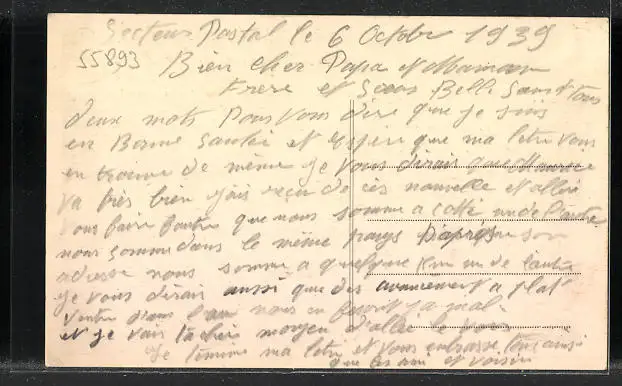 Secteur Postal le 6 Octobre 1939
55893
Bien cher Papa et Maman
Frere et Seurs Belle
deux mots pour vous dire que je suis
en Bonne Santé et Espère que ma letre vous
en trouve de même je vous dirais que Maurice
va très bien jais reçu de ces nouvelle et allai
vous faire que nous somme a coté un de l'autre
nous somme dans le même pays D'après son
adresse nous somme a quelque Km un de lautre
je vous dirais aussi que des avancement a plat
Ventre dans nous en a mal
et je vais tacher moyen d'allé le voir
je termine ma letre et vous embrasse tous ainsi
que les ami et voisin